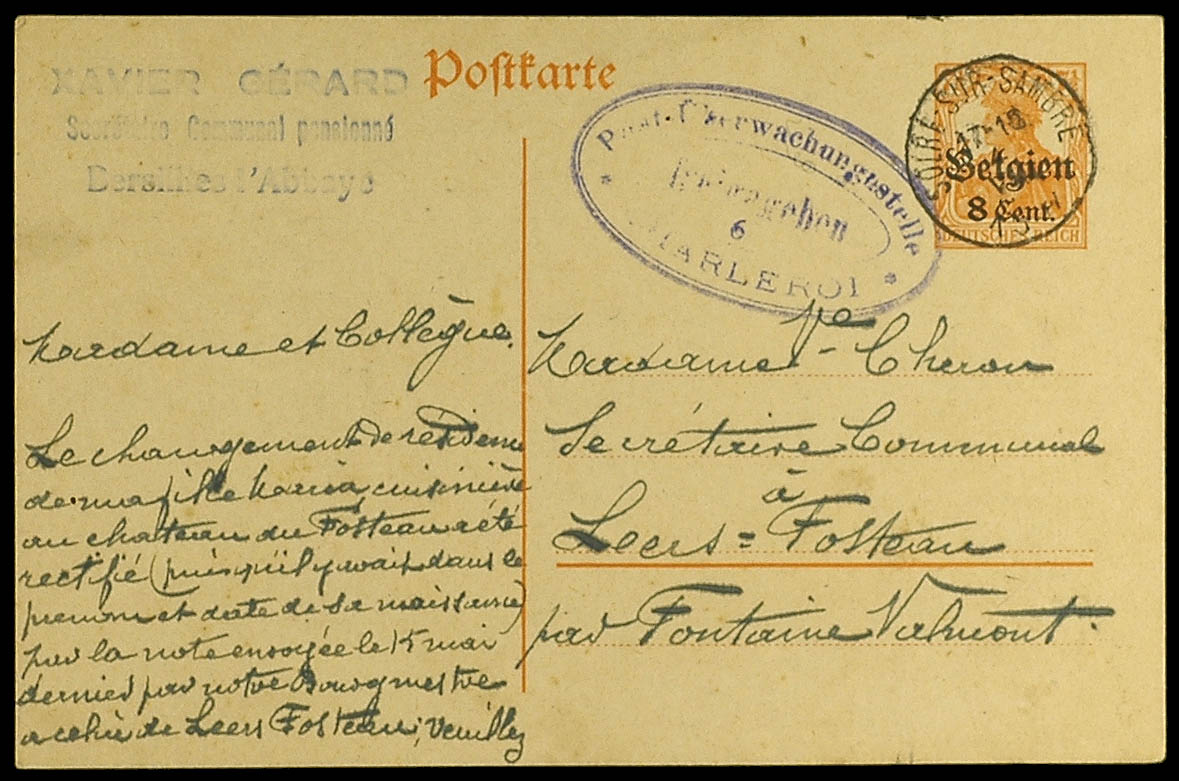 XAVIER GÉRARD
Secrétaire Communal pensionné
Bersillies l'Abbaye
Postkarte
Post-Überwachungsstelle
Freigegeben
6
CHARLEROI
SOLRE-SUR-SAMBRE
17-18
Belgien
8 Cent.
DEUTSCHES REICH
Madame et Collègue.
Le changement de résidence
de ma fille Maria, cuisinière
au chateau du Fosteau a été
rectifié (puisqu'il y avait dans le
prenom et date de sa naissance)
par la note envoyée le 15 mai
dernier par notre Bourgmestre
a celui de Leers Fosteau; Veuillez
Madame Ve Cheron
Secrétaire Communal
à
Leers = Fosteau
par Fontaine Valmont.